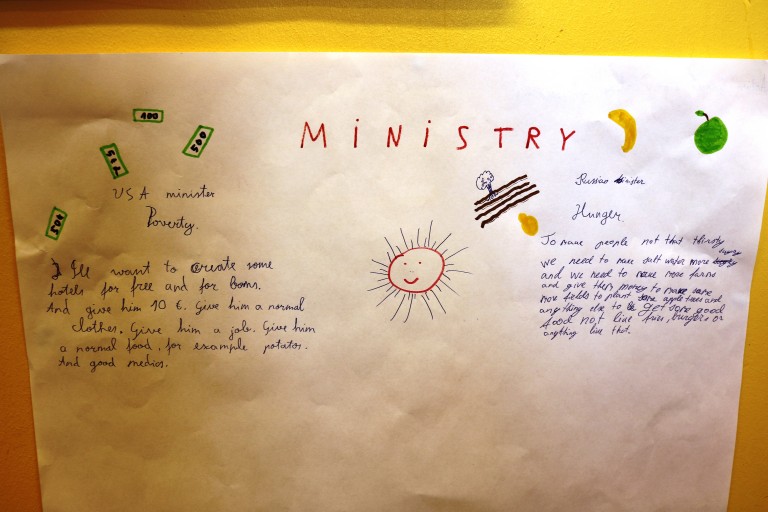 MiNiSTRY
400
500
512
USA minister
Poverty.
want to create some
hotels for free and for
And give him 10 €. Give him a normal
clothes. Give him a job. Give him
a normal food, for example potator.
And good medics.
Russian minister
Hunger.
To make people not that thirsty
we need to make salt water more
and we need to make more farms
and give them money to make some
more fields to plant some apple trees and
anything else to get some good
food not like fries, burgers or
anything like that.